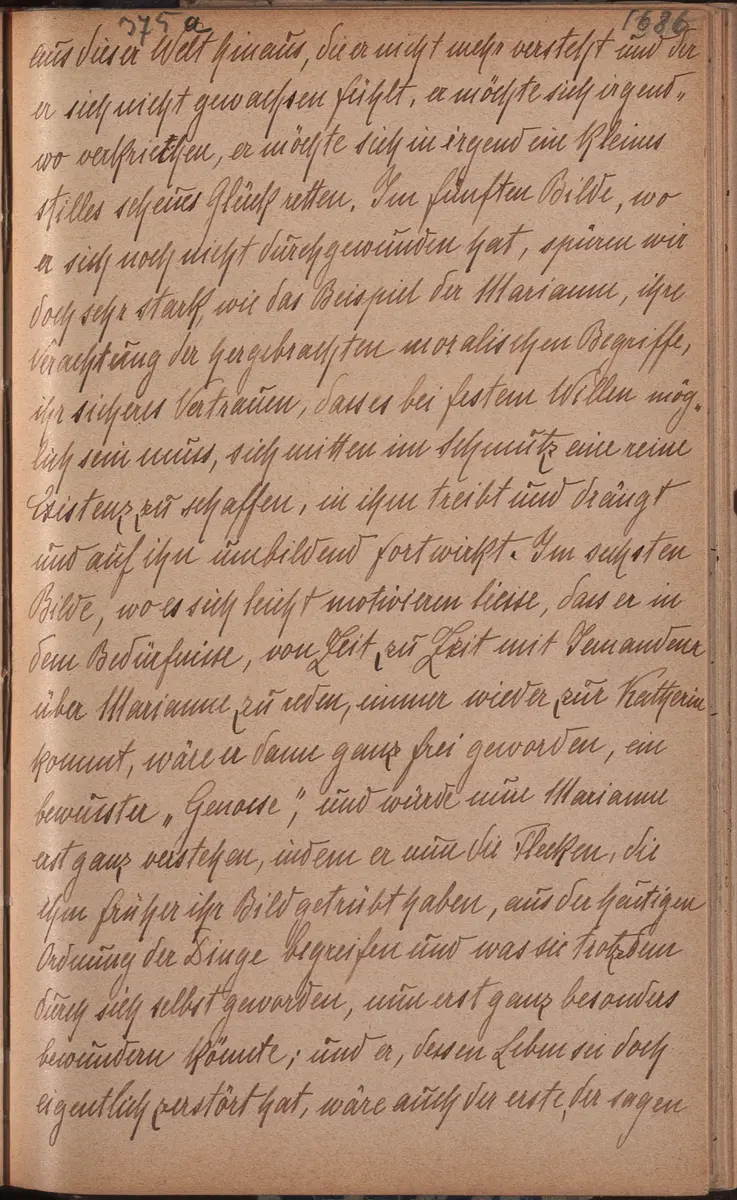 375 a 1686
aus dieser Welt hinaus, die er nicht mehr versteht und der
er sich nicht gewachsen fühlt, er möchte sich irgend„
wo verkriechen, er möchte sich in irgend ein kleines
stilles scheues Glück retten. Im fünften Bilde, wo
er sich noch nicht durchgewunden hat, spüren wir
doch sehr stark, wie das Beispiel der Marianne, ihre
Verachtung der hergebrachten moralischen Begriffe,
ihr sicheres Vertrauen, dass es bei festem Willen mög„
lich sein muss, sich mitten im Schmutz eine reine
Existenz zu schaffen, in ihm treibt und drängt
und auf ihn umbildend fortwirkt. Im sechsten
Bilde, wo es sich leicht motivieren liesse, dass er in
dem Bedürfnisse, von Zeit zu Zeit mit Jemandem
über Marianne zu reden, immer wieder zur Katherin
kommt, wäre er dann ganz frei geworden, ein
bewusster „Genosse", und würde nun Marianne
erst ganz verstehen, indem er nun die Flecken, die
ihm früher ihr Bild getrübt haben, aus der heutigen
Ordnung der Dinge begreifen und was sie trotzdem
durch sich selbst geworden, nun erst ganz besonders
bewundern könnte; und er, dessen Leben sie doch
eigentlich zerstört hat, wäre auch der erste, der sagen